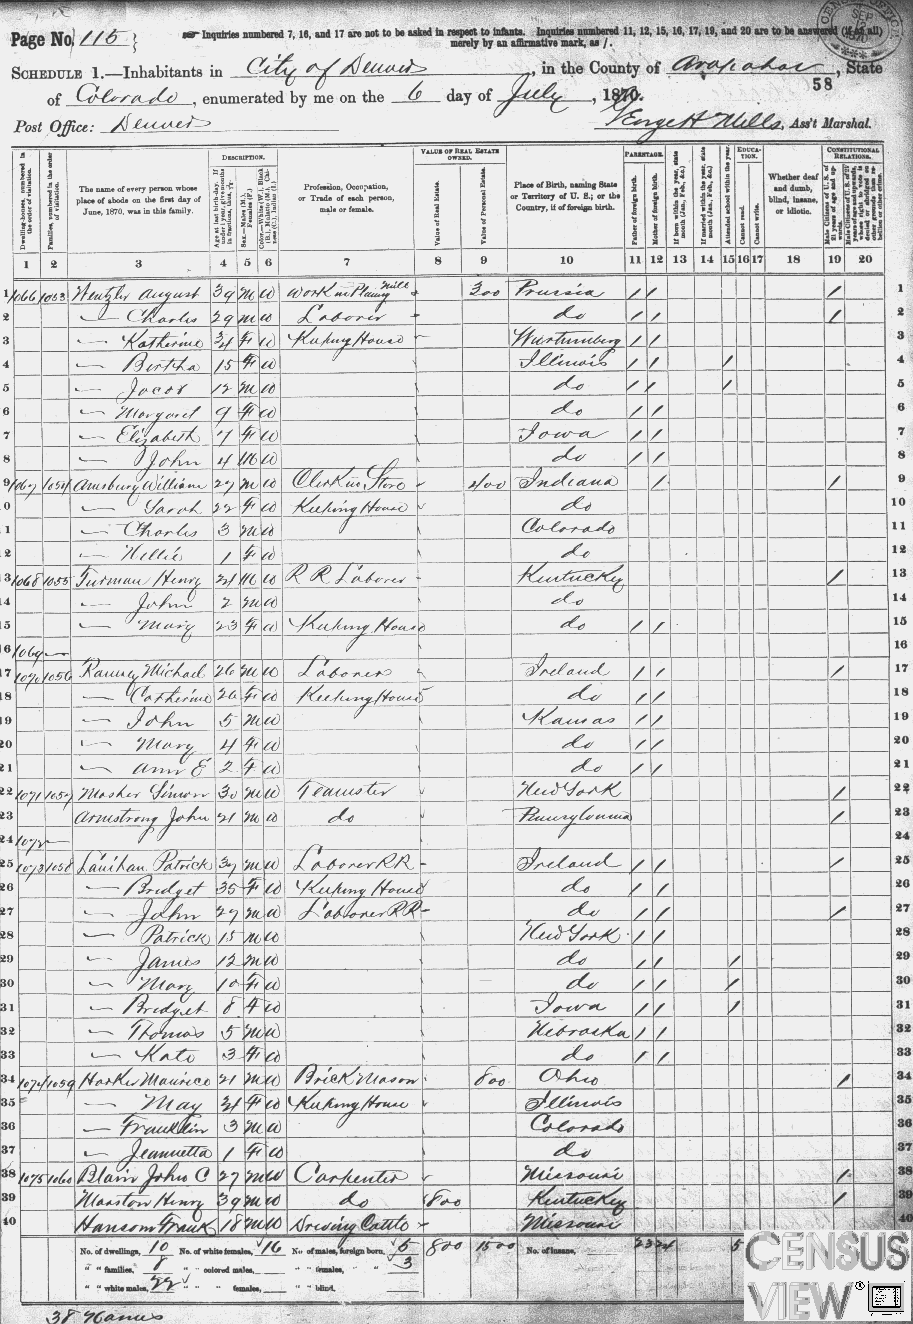 Page No. 115
Inquiries numbered 7, 16, and 17 are not to be asked in respect to infants. Inquiries numbered 11, 12, 15, 16, 17, 19, and 20 are to be answered (if at all)
merely by an affirmative mark, as /.
SCHEDULE 1.—Inhabitants in City of Denver, in the County of Arapahoe, State
58
of Colorado, enumerated by me on the 6 day of July, 1870.
Post Office: Denver George H Mills, Ass't Marshal.
Dwelling-houses, numbered in the order of visitation.
Families, numbered in the order of visitation.
The name of every person whose place of abode on the first day of June, 1870, was in this family.
DESCRIPTION.
Profession, Occupation, or Trade of each person, male or female.
VALUE OF REAL ESTATE OWNED.
Value of Real Estate.
Value of Personal Estate.
Place of Birth, naming State or Territory of U. S.; or the Country, if of foreign birth.
PARENTAGE.
Father of foreign birth.
Mother of foreign birth.
EDUCATION.
Attended school within the year.
Cannot read.
Cannot write.
Whether deaf and dumb, blind, insane, or idiotic.
CONSTITUTIONAL RELATIONS.
1 2 3 4 5 6 7 8 9 10 11 12 13 14 15 16 17 18 19 20
1 1066 1053 Wentzler August 39 M W Work in Planing Mill 300 Prussia / / / 1
2 — Charles 29 M W Laborer do / / / 2
3 — Katherine 34 F W Keeping House Wurtumberg / / 3
4 — Bertha 15 F W Illinois / / / 4
5 — Jacob 12 M W do / / / 5
6 — Margaret 9 F W do / / 6
7 — Elizabeth 7 F W Iowa / / 7
8 — John 4 M W do / / 8
9 1067 1054 Amsbury William 27 M W Clerk in Store 400 Indiana / / 9
10 — Sarah 22 F W Keeping House do 10
11 — Charles 3 M W Colorado 11
12 — Nellie 1 F W do 12
13 1068 1055 Furman Henry 24 M W R R Laborer Kentucky / 13
14 — John 2 M W do 14
15 — Mary 23 F W Keeping House do / / 15
16 1069 — 16
17 1070 1056 Ranney Michael 26 M W Laborer Ireland / / / 17
18 — Catherine 26 F W Keeping House do / / 18
19 — John 5 M W Kansas / / 19
20 — Mary 4 F W do / / 20
21 — Ann E 2 F W do / / 21
22 1071 1057 Mosher Simon 30 M W Teamster New York / 22
23 Armstrong John 21 M W do Pennsylvania / 23
24 1072 — 24
25 1073 1058 Lanihan Patrick 37 M W Laborer RR Ireland / / / 25
26 — Bridget 35 F W Keeping House do / / 26
27 — John 27 M W Laborer RR do / / / 27
28 — Patrick 15 M W New York / / 28
29 — James 12 M W do / / / 29
30 — Mary 10 F W do / / / 30
31 — Bridget 8 F W Iowa / / / 31
32 — Thomas 5 M W Nebraska / / 32
33 — Kate 3 F W do / / 33
34 1074 1059 Harker Maurice 21 M W Brick Mason 800 Ohio / 34
35 — May 21 F W Keeping House Illinois 35
36 — Franklin 3 M W Colorado 36
37 — Jeannetta 1 F W do 37
38 1075 1060 Blain John C 27 M W Carpenter Missouri / 38
39 Marston Henry 39 M W do 800 Kentucky / 39
40 Hansom Frank 18 M W Driving Cattle Missouri 40
No. of dwellings, 10 No. of white females, 16 No. of males, foreign born, 5 800 1500 No. of insane, 23 24 5
" " families, 8 " " colored males, " " females, " " 3
" " white males, 22 " " females, " " blind.
38 Names
CENSUS
VIEW®